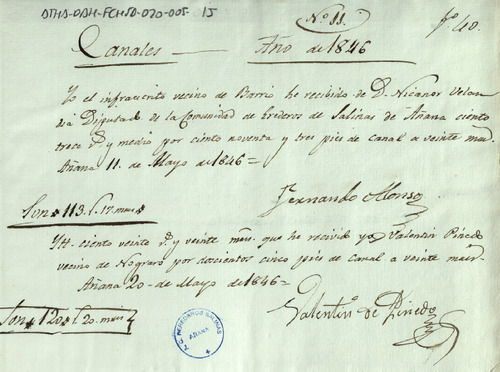 ATHA-DAH-FCHSA-020-005-15
Nº 11.
fº 40.
Canales Año de 1846
Yo el infraescrito vecino de Barrio he recibido de D. Nicanor Velan
dia Diputado de la Comunidad de erederos de Salinas de Añana ciento
trece rs. y medio por ciento noventa y tres pies de canal a veinte mrs.
Añana 11 de Mayo de 1846=
Fernando Alonso
Son 113 rs. 17 mrs
Yt. ciento veinte rs. y veinte mrs. que he recivido yo Valentin Pinedo
vecino de Nograro por doscientos cinco pies de canal a veinte mrs.
Añana 20 de Mayo de 1846=
Valentin de Pinedo
Son 120 rs. 20 mrs
HEREDEROS SALINAS
AÑANA